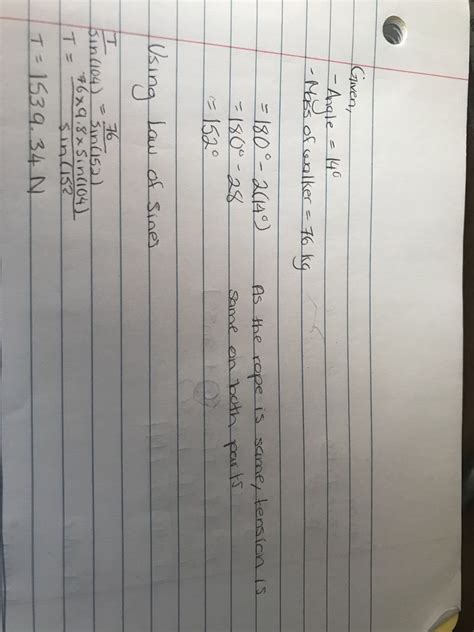 Given,
- Angle = 14°
- Mass of walker = 76 kg
= 180° - 2(14°) As the rope is same, tension is
= 180° - 28 same on both parts
= 152°
Using Law of Sines
T/sin(104) = 76/sin(152)
T = 76 x 9.8 x sin(104)/sin(152
T = 1539.34 N